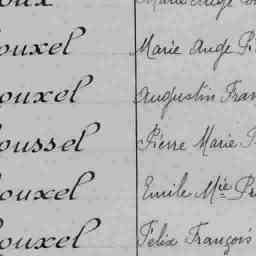 ouxel Marie Ange
ouxel Augustin Fran
oussel Pierre Marie
ouxel Emile Mie
ouxel Félix François